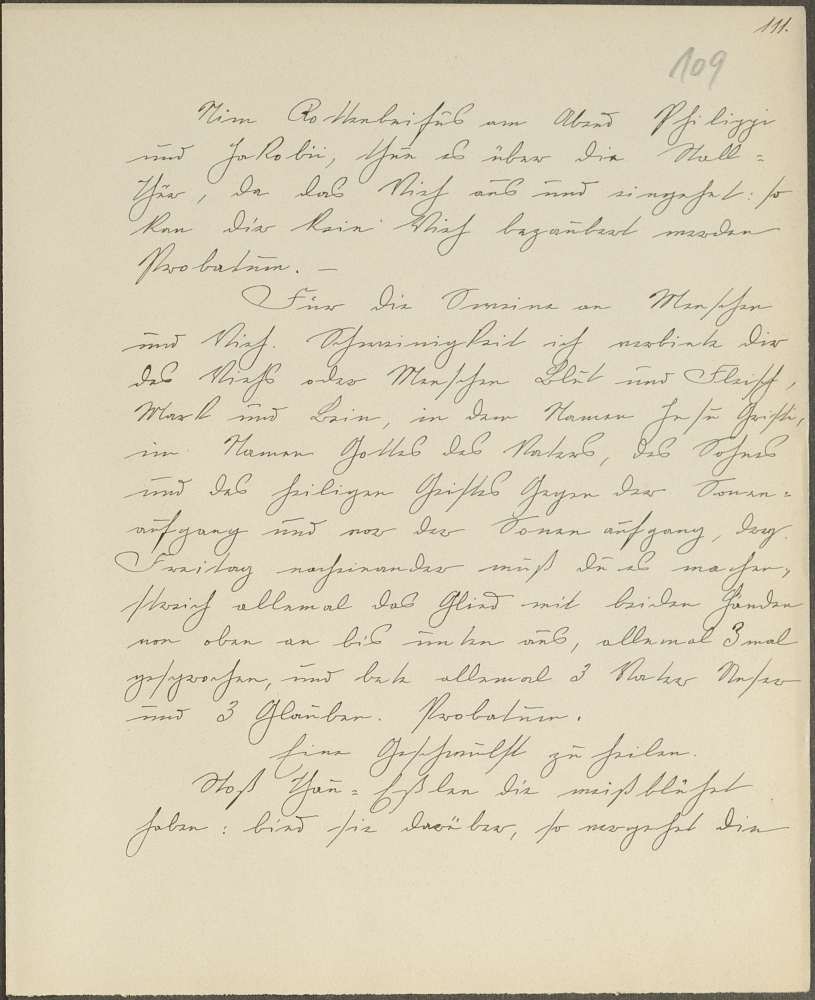 111.
109
Nim Rottenbeifus am Abend Philippi
und Jakobii, thue es über die Stall=
thür, da das Vieh aus und eingehet: so
kan dir kein Vieh bezaubert werden
Probatum. —
Für die Sweine an Menschen
und Vieh. Schweinigkeit ich verbiete dir
des Viehs oder Menschen Blut und Fleisch,
Mark und Bein, in dem Namen Jesu Christi,
im Namen Gottes des Vaters, des Sohnes
und des heiligen Geistes Gegen der Sonen=
aufgang und vor der Sonen aufgang, drey
Freitag nacheinander muß du es machen,
streich allemal das Glied mit beiden Händen
von oben an bis unten aus, allemal 3 mal
gesprochen, und bete allemal 3 Vater Unser
und 3 Glauben. Probatum.
Eine Geschwulst zu heilen.
Stoß die weißblühet
haben: bind sie darüber, so vergehet die